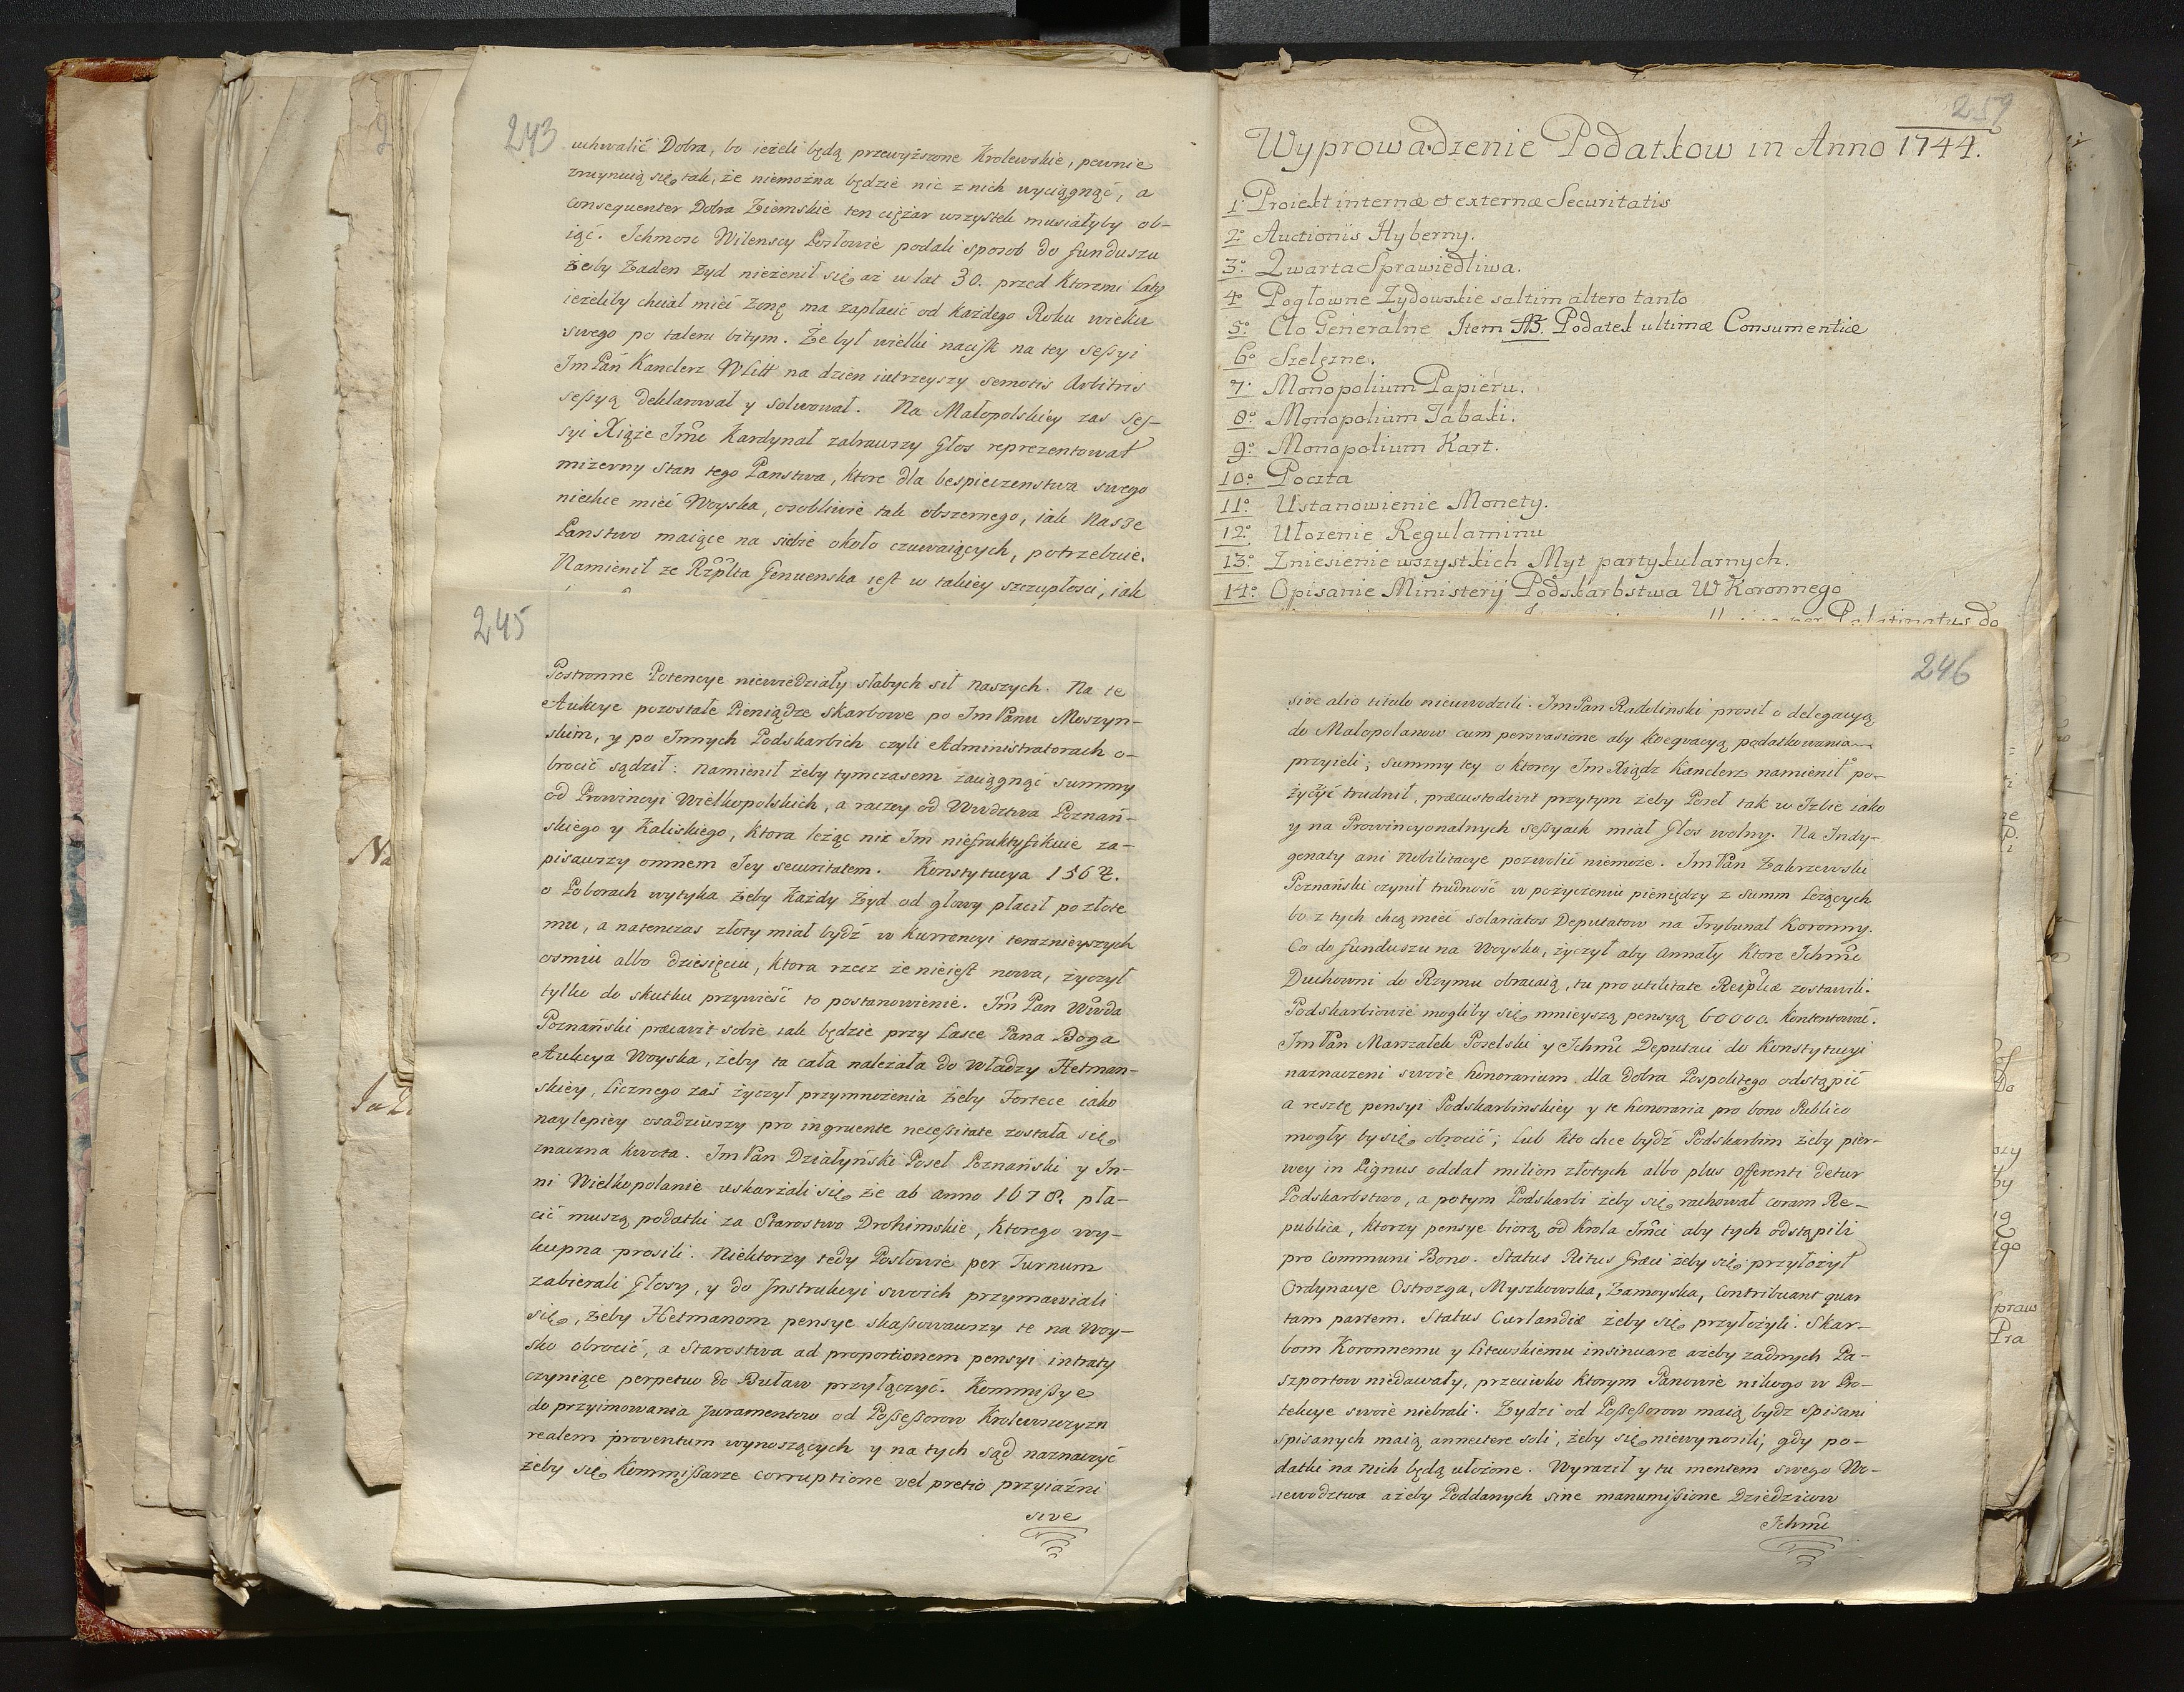 243
uchwalić Dobra, bo ieżeli będą przewyższone Krolewskie, pewnie
zruynuią się tak, że niemożna będzie nic z nich wyciągnąć, a
consequenter Dobra Ziemskie ten ciężar wszystek musiałyby ob-
iąć. Ichmosc Wilenscy Posłowie podali sposob do funduszu
żeby żaden Zyd nieżenił się aż w lat 30. przed ktoremi laty
ieżeliby chciał mieć żonę ma zapłacić od każdego Roku wieku
swego po taleru bitym. Że był wielki nacisk na tey sessyi
Im Pan Kanclerz WLitt na dzien iutrzeyszy semotis Arbitris
sessyą deklarował y solwował. Na Małopolskiey zas ses-
syi Xiąże Jmc Kardynał zabrawszy Głos reprezentował
mizerny stan tego Panstwa, ktore dla bespieczenstwa swego
niechce mieć Woyska, osobliwie tak obszernego, iak nasze
Panstwo maiące na siebie około czuwaiących, potrzebuie.
Namienił ze Rzplta Genuenska iest w takiey szczupłosci, iak
245
Postronne Potencye niewiedziały słabych sił naszych. Na te
Aukcye pozostałe Pieniądze skarbowe po Im Panu Moszyn-
skim, y po Innych Podskarbich czyli Administratorach o-
brocić sądził: namienił żeby tymczasem zaciągnąć summy
od Prowincyi Wielkopolskich, a raczey od Wwdztwa Poznań-
skiego y Kaliskiego, ktora leżąc nic Im niefruktyfikuie za-
pisawszy omnem Jey securitatem. Konstytucya 1562.
o Poborach wytyka żeby każdy Żyd od głowy płacił po złote
mu, a natenczas złoty miał bydź w kurrencyi teraznieyszych
osmiu albo dziesięciu, ktora rzecz że nieiest nowa, życzył
tylko do skutku przywieść to postanowienie. Jm Pan Wwda
Poznański præcavit sobie iak będzie przy Lasce Pana Boga
Aukcya Woyska, żeby ta cała należała do władzy Hetman-
skiey, licznego zaś życzył przymnożenia żeby Fortece iako
naylepiey osadziwszy pro ingruente necessitate została się
znaczna kwota. Im Pan Działyński Poseł Poznański y In-
ni Wielkopolanie uskarżali się że ab anno 1678. pła-
cić muszą podatki za Starostwo Drohimskie, ktorego wy-
kupna prosili. Niektorzy tedy Posłowie per Turnum
zabierali Głosy, y do Instrukcyi swoich przymawiali
się, żeby Hetmanom pensye skassowawszy te na Woy-
sko obrocić, a Starostwa ad proportionem pensyi intraty
czyniące perpetuo do Buław przyłączyć. Kommissye
do przyimowania Juramentow od Possessorow Krolewszczyzn
realem proventum wynoszących y na tych sąd naznaczyć
żeby się Kommissarze corruptione vel pretio przyiaźni
sive
259
Wyprowadzenie Podatkow in Anno 1744.
1. Proiekt internæ et externæ Securitatis
2º Auctioniis Hyberny.
3º Qwarta Sprawiedliwa.
4º Pogłowne Zydowskie saltim altero tanto
5º Cło Generalne Item AB. Podatek ultimæ Consumentiæ
6º Szelęzne.
7º Monopolium Papieru.
8º Monopolium Tabaki.
9º Monopolium Kart.
10º Poczta
11º Ustanowienie Monety.
12º Ułozenie Regulaminu
13º Zniesienie wszystkich Myt partykularnych.
14º Opisanie Ministerij Podskarbstwa W Koronnego
per Palatinatus do
246
sive alio titulo nieuwodzili. Im Pan Radolinski prosił o delegacyą
do Małopolanow cum persvasione aby koegvacyą podatkowania
przyieli; summy tey o ktorey Im Xiądz Kanclerz namienił po-
życzyć trudnił, præcustodivit przytym żeby Poseł tak w Izbie iako
y na Prowincyonalnych sessyach miał Głos wolny. Na Indy-
genaty ani Nobilitacye pozwolić niemoże. Im Pan Zakrzewski
Poznański czynił trudność w pożyczeniu pieniędzy z summ leżących
bo z tych chcą mieć solariatos Deputatow na Trybunał Koronny.
Co do funduszu na Woysko, życzył aby annaty ktore Ichmc
Duchowni do Rzymu obracaią, tu pro utilitate Reiplicæ zostawili.
Podskarbiowie mogliby się mnieyszą pensyą 60000. kontentować.
Im Pan Marszałek Poselski y Ichmc Deputaci do Konstytucyi
naznaczeni swoie honorarium dla dobra Pospolitego odstąpić
a resztę pensyi Podskarbinskiey y te honoraria pro bono Publico
mogły by się obrocić; Lub kto chce bydź Podskarbim żeby pier-
wey in Pignus oddał milion złotych albo plus offerenti detur
Podskarbstwo, a potym Podskarbi żeby się rachował coram Re-
publica, ktorzy pensye biorą od Krola Jmci aby tych odstąpili
pro communi Bono. Status Ritus Græci żeby się przyłożył
Ordynacye Ostrozga, Myszkowska, Zamoyska, contribuant quar
tam partem. Status Curlandiæ żeby się przyłożyli. Skar-
bom Koronnemu y Litewskiemu insinuare ażeby żadnych Pa-
szportow niedawały, przeciwko ktorym Panowie nikogo w Pro-
tekcye swoie niebrali. Zydzi od Possessorow maią bydz spisani
spisanych maią annectere soli, żeby się niewynosili, gdy po-
datki na nich będą ułożone. Wyraził y tu mentem swego Wo-
iewodztwa ażeby Poddanych sine manumissione Dziedzicow
Ichmc